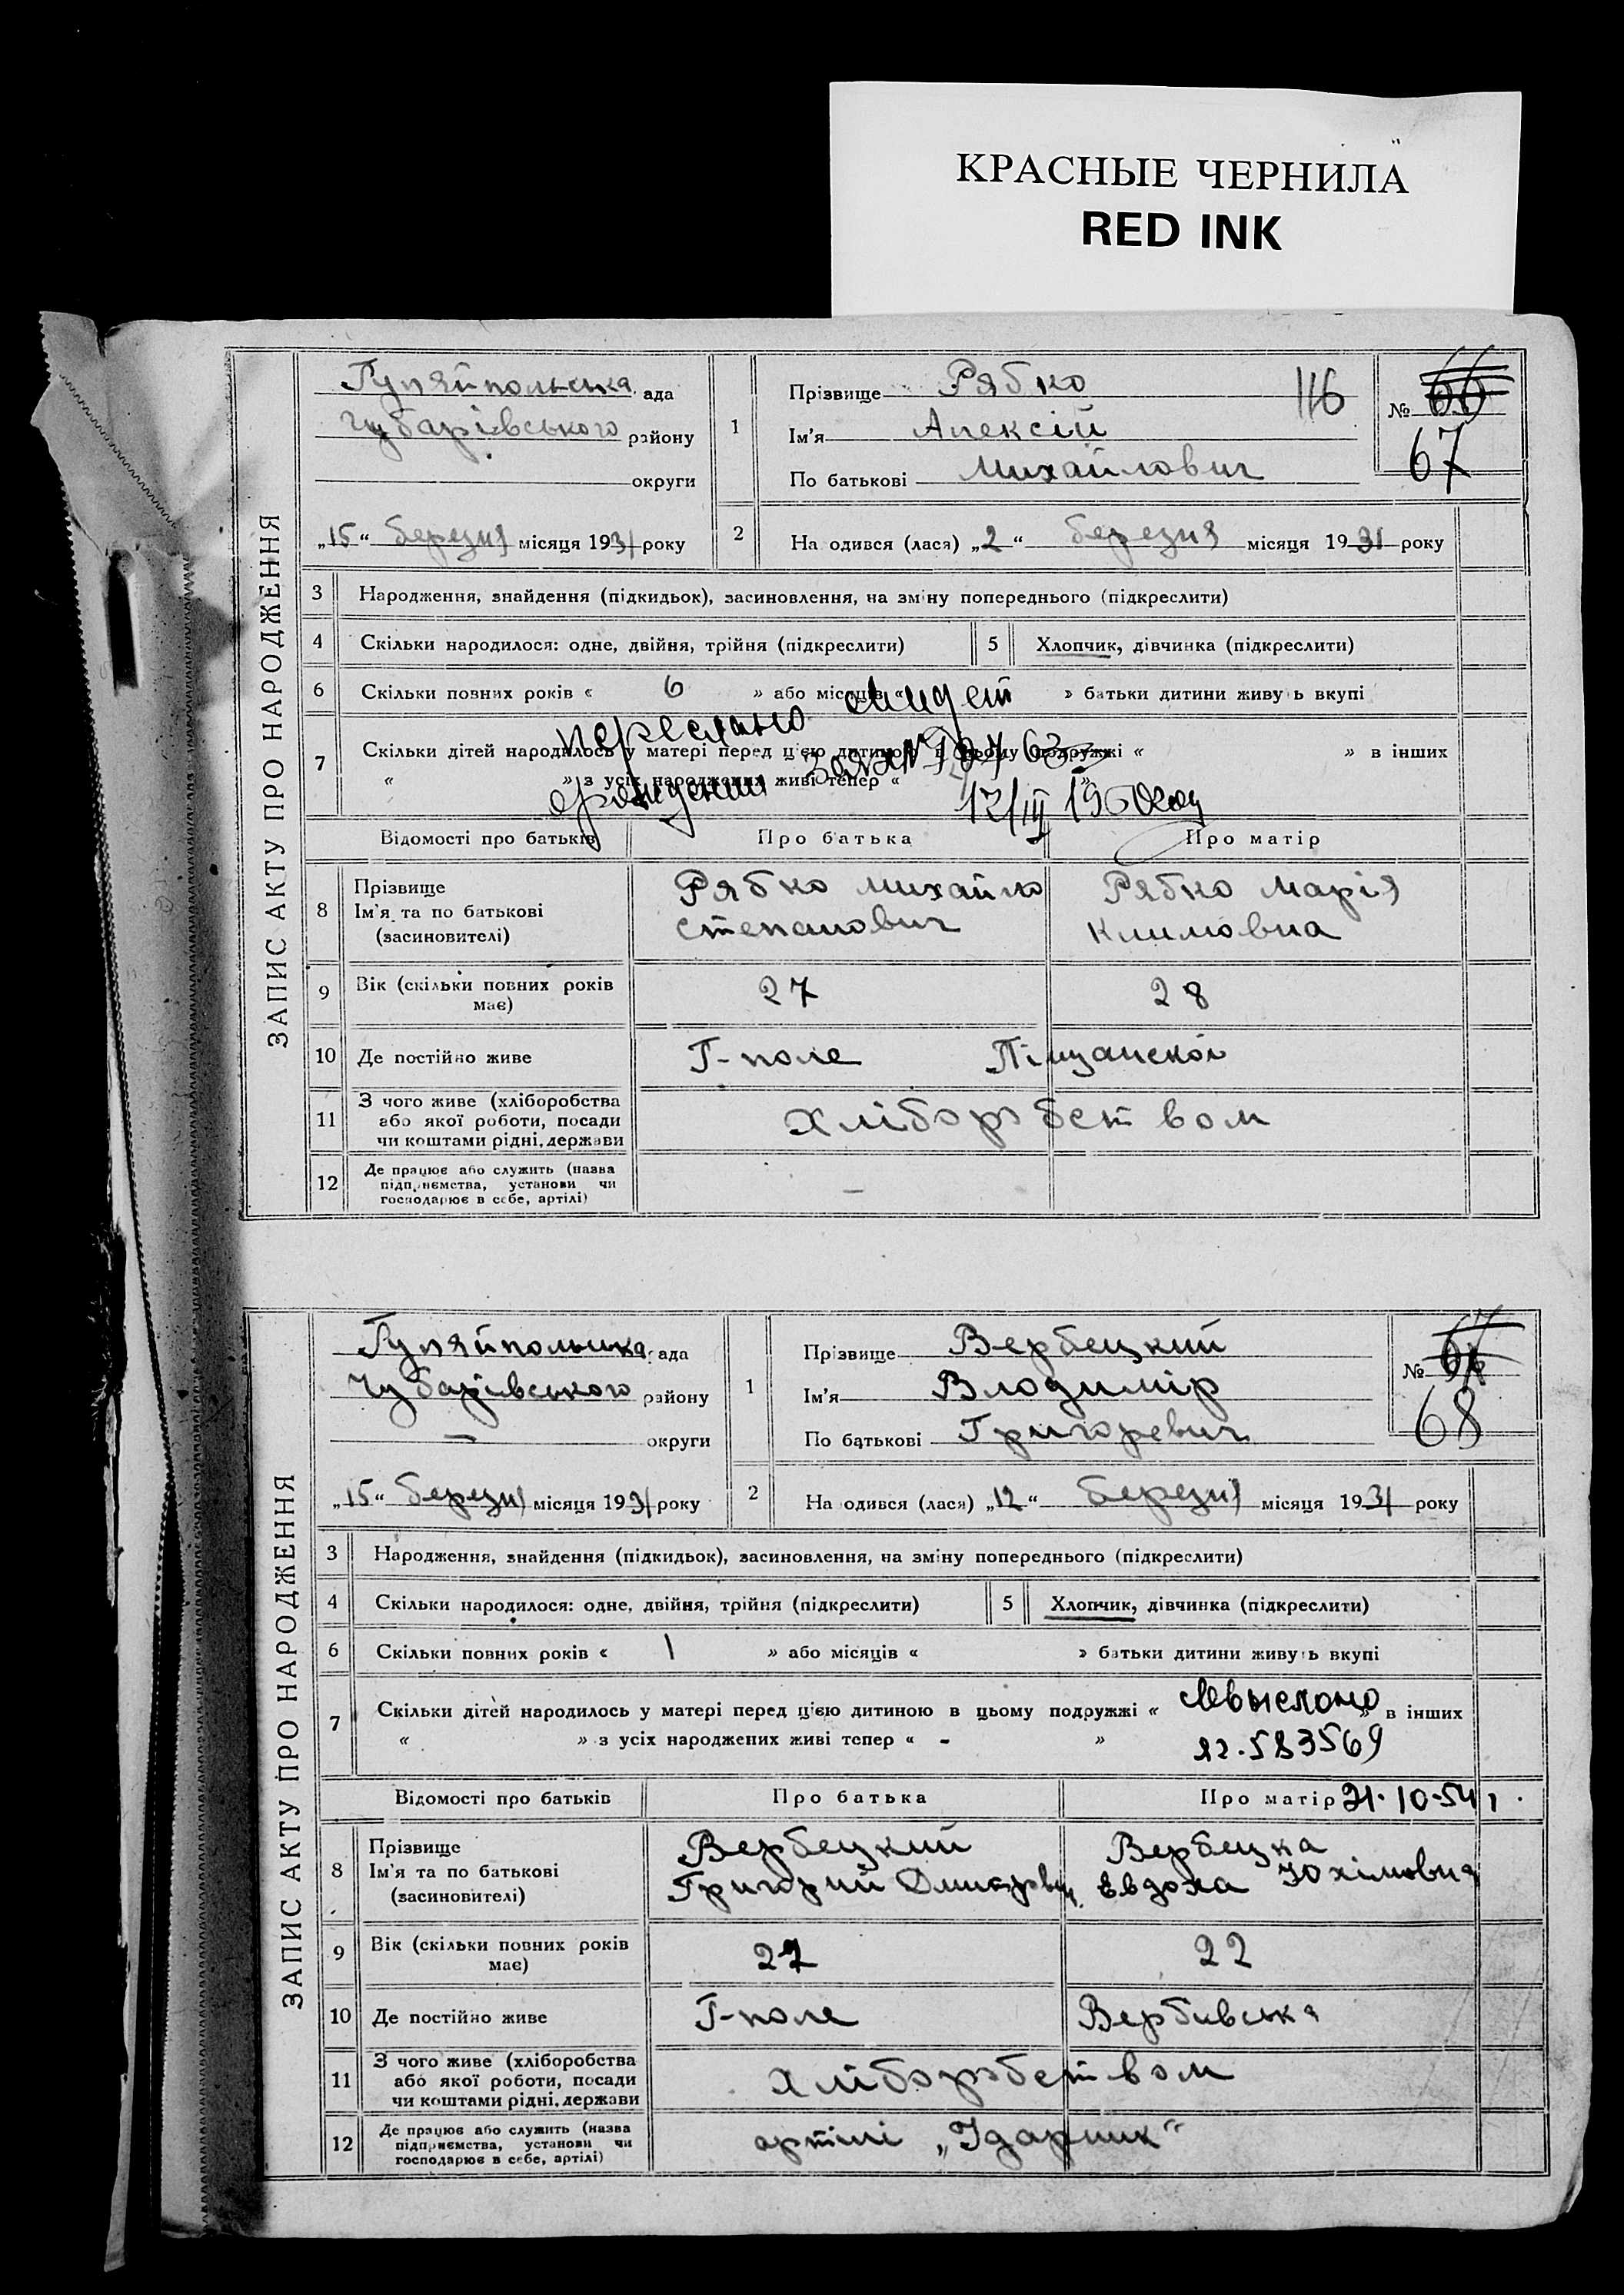 КРАСНЫЕ ЧЕРНИЛА
RED INK
ЗАПИС АКТУ ПРО НАРОДЖЕННЯ
Гуляйпольська ада
Чубарівського району
округи
„15“ березня місяця 1931 року
1
Прізвище Рябко
Ім'я Алексій
По батькові Михайлович
116
№ 66
67
2 На одився (лася) „2“ березня місяця 1931 року
3 Народження, знайдення (підкидьок), засиновлення, на зміну попереднього (підкреслити)
4 Скільки народилося: одне, двійня, трійня (підкреслити) 5 Хлопчик, дівчинка (підкреслити)
6 Скільки повних років « 6 » або місяців « » батьки дитини живуть вкупі
7 Скільки дітей народилось у матері перед цією дитиною в цьому подружжі « » в інших
« » з усіх народжених живі тепер « »
переслано
12/III 1960 год
Відомості про батьків Про батька Про матір
8 Прізвище
Ім'я та по батькові
(засиновителі)
Рябко Михайло
Степанович
Рябко Марія
Климовна
9 Вік (скільки повних років
має)
27 28
10 Де постійно живе Г-поле
11 З чого живе (хліборобства
або якої роботи, посади
чи коштами рідні, держави
Хліборобством
12 Де працює або служить (назва
підприємства, установи чи
господарює в себе, артілі)
—
ЗАПИС АКТУ ПРО НАРОДЖЕННЯ
Гуляйпольська ада
Чубарівського району
— округи
„15“ березня місяця 1931 року
1
Прізвище Вербецкий
Ім'я Влодимір
По батькові Григоревич
№
68
2 На одився (лася) „12“ березня місяця 1931 року
3 Народження, знайдення (підкидьок), засиновлення, на зміну попереднього (підкреслити)
4 Скільки народилося: одне, двійня, трійня (підкреслити) 5 Хлопчик, дівчинка (підкреслити)
6 Скільки повних років « 1 » або місяців « » батьки дитини живуть вкупі
7 Скільки дітей народилось у матері перед цією дитиною в цьому подружжі « » в інших
« » з усіх народжених живі тепер « - »
583569
Відомості про батьків Про батька Про матір 21.10.54
8 Прізвище
Ім'я та по батькові
(засиновителі)
Вербецкий
Григорий
Вербецка
Евдоха Юхімовна
9 Вік (скільки повних років
має)
27 22
10 Де постійно живе Г-поле Вербивська
11 З чого живе (хліборобства
або якої роботи, посади
чи коштами рідні, держави
Хліборобством
12 Де працює або служить (назва
підприємства, установи чи
господарює в себе, артілі)
артілі „Ударник“